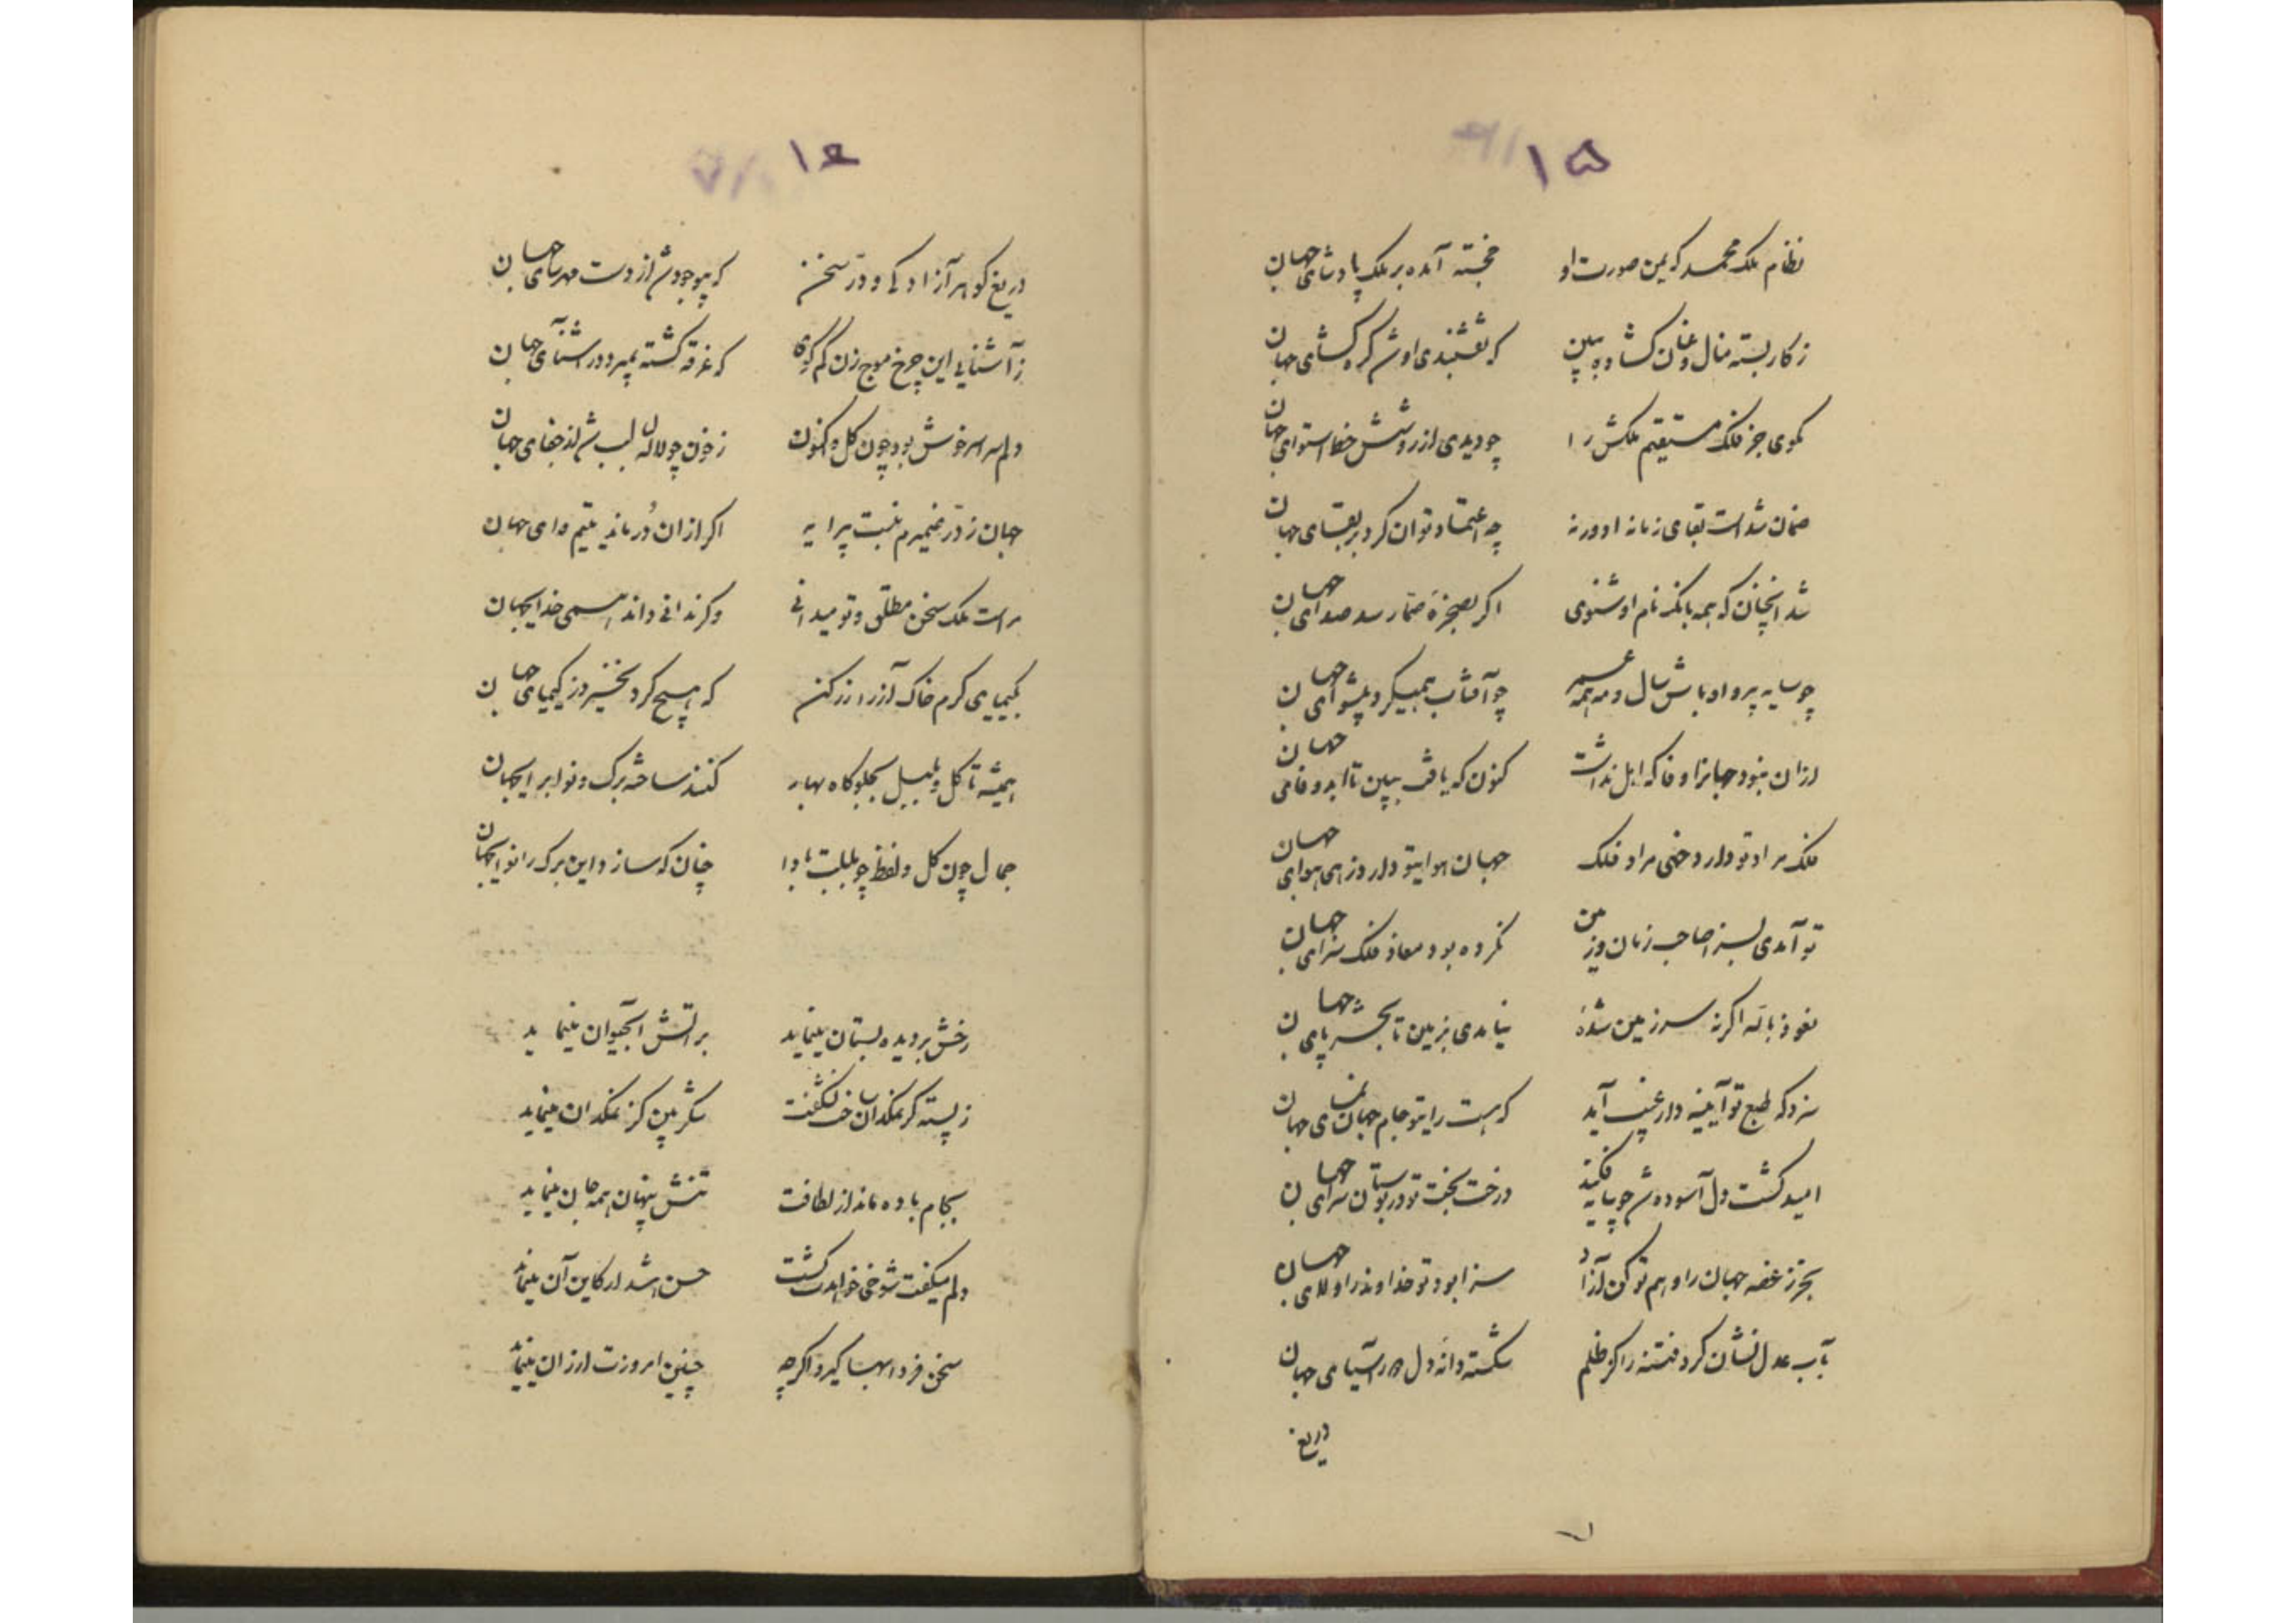 ۱۵
نظام ملک محمد که یمن صورت او خجسته آمده بر ملک پادشای جهان
ز کار بسته منال و عنان کشاده ببین که نقشبندی اوشد گره کشای جهان
مگوی جز فلک مستقیم ملکش را چو دیدی از روشش خط استوای جهان
ضمان شداست بقای زمانه او ورنه چه اعتماد توان کرد بر بقای جهان
شد انچنان که همه بانک نام او شنوی اگر بصخرهٔ صما رسد صدای جهان
چو سایه پیرو او باش سال و مه همه عمر چو آفتاب همیگرد پیشوای جهان
ازان نبود جهانرا وفا که اهل نداشت کنون که یافت ببین تا ابد وفای جهان
فلک مراد تو دارد خهی مراد فلک جهان هوای تو دارد زهی هوای جهان
تو آمدی بسزا صاحب زمان و زمین نکرده بود معاذ فلک سزای جهان
نعوذ بالله اگر نه سر زمین شدهٔ نیامدی بزمین تا بحشر پای جهان
سزد که طبع تو آیینه دار غیب آید که هست رای تو جام جهان نمای جهان
امید گشت دل آسوده شد چو پایه فکند درخت بخت تو در بوستان سرای جهان
بجز ز غصه جهان را و هم تو کن آزاد سزا بود تو خداوند را ولای جهان
بآب عدل نشان گرد فتنه را کز ظلم شکسته دانه دل در آسیای جهان
دریغ
۱۶
دریغ گوهر آزادگی و در سخن که بیوجودش از دست مهرهای جهان
ز آشنایی این چرخ موج زن کم گوی که غرقه گشته بمیرد در آشنای جهان
دلم سراسر خوش بود چون گل و اکنون ز خون چو لاله لبالب شد از جفای جهان
جهان ز در ضمیرم نبست پیرایه اگر ازان در ماند یتیم وای جهان
مراست ملک سخن مطلق و تو میدانی وگر ندانی داند همی خدای جهان
بکیمیای کرم خاک آز را زر کن که هیچ گرد نخیزد ز کیمیای جهان
همیشه تا گل و بلبل بجلوه گاه بهار کنند ساخته برگ و نوا برای جهان
جمال چون گل و لفظ چو بلبلت بادا چنان که سازد این برگ را نوای جهان
رخش بر دیده بستان مینماید بر آتش آبحیوان مینماید
ز پسته گر نمکدان ساخت نشگفت شکر بین کز نمکدان مینماید
بجام باده ماند از لطافت تنش پنهان همه جان مینماید
دلم میگفت شوخی خواهدت کشت حسن هشدار کاین آن مینماید
سخن فردا بها گیرد اگرچه چنین امروزت ارزان مینماید